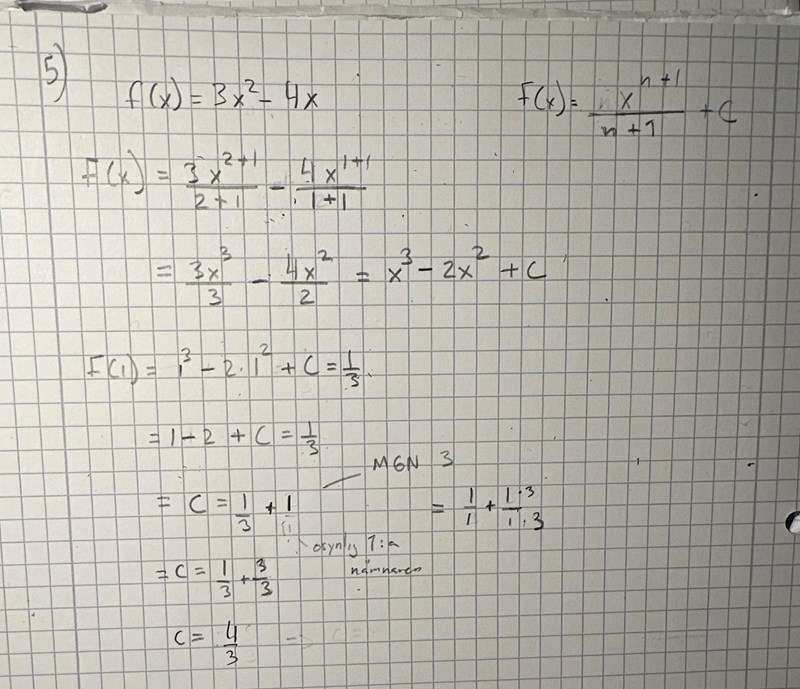 5)
f(x) = 3x² - 4x
F(x) = x^(n+1)/(n+1) + C
F(x) = 3x^(2+1)/(2+1) - 4x^(1+1)/(1+1)
= 3x³/3 - 4x²/2 = x³ - 2x² + C
F(1) = 1³ - 2·1² + C = 1/3
= 1 - 2 + C = 1/3
MGN 3
= C = 1/3 + 1/1
= 1/1 + 1·3/1·3
osynlig 1:a
nämnaren
= C = 1/3 + 3/3
C = 4/3